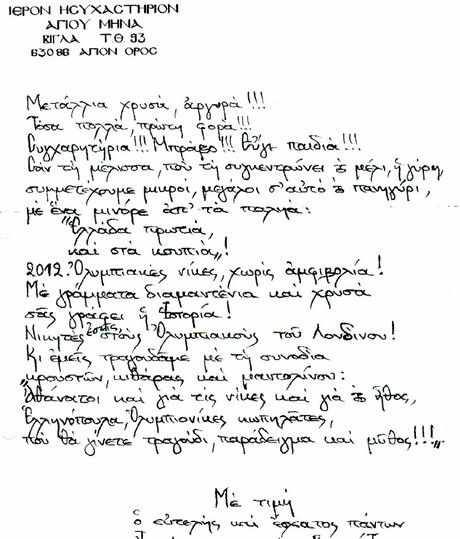 ΙΕΡΟΝ ΗCΥΧΑCΤΗΡΙΟΝ
ΑΓΙΟΥ ΜΗΝΑ
ΒΙΓΛΑ Τ.Θ. 93
63086 ΑΓΙΟΝ ΟΡΟC
Μετάλλια χρυσά, ἀργυρά!!!
Τόσα πολλά, πρώτη φορά!!!
Συγχαρητήρια!!! Μπράβο!!! Εὖγε παιδιά!!!
Σάν τή μέλισσα, πού τή συγκεντρώνει τό μέλι, ἡ γύρη,
συμμετέχουμε μικροί, μεγάλοι σ' αὐτό τό πανηγύρι,
μέ ἕνα μινόρε ἀπ' τά παλιά:
"Ἑλλάδα πρωτειά,
καί στά κουπιά"!
2012. Ὀλυμπιακές νίκες, χωρίς ἀμφιβολία!
Μέ γράμματα διαμαντένια καί χρυσά
σᾶς γράφει ἡ Ἱστορία!
Νικητές ἐσεῖς, στούς Ὀλυμπιακούς τοῦ Λονδίνου!
Κι ἐμεῖς τραγουδᾶμε μέ τή συνοδία
κρουστῶν, κιθάρας καί μαντολίνου:
"Ἀθάνατοι καί γιά τίς νίκες καί γιά τό ἦθος,
Ἑλληνόπουλα, Ὀλυμπιονίκες κωπηλάτες,
πού θά γίνετε τραγούδι, παράδειγμα καί μῦθος!!!"
Μέ τιμή
ὁ εὐτελής καί ἔσχατος πάντων